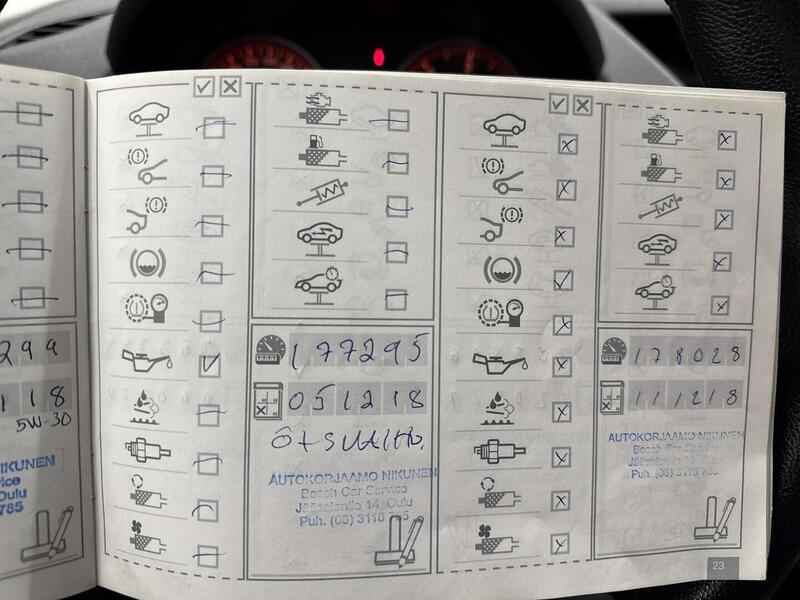 299
118
5W-30
NIKUNEN
Oulu
785
177295
051218
AUTOKORJAAMO NIKUNEN
Bosch Car Service
Jääsalontie 14, Oulu
Puh. (08) 3116 785
178028
111218
AUTOKORJAAMO NIKUNEN
Bosch Car Service
Puh. (08) 3116 785
23